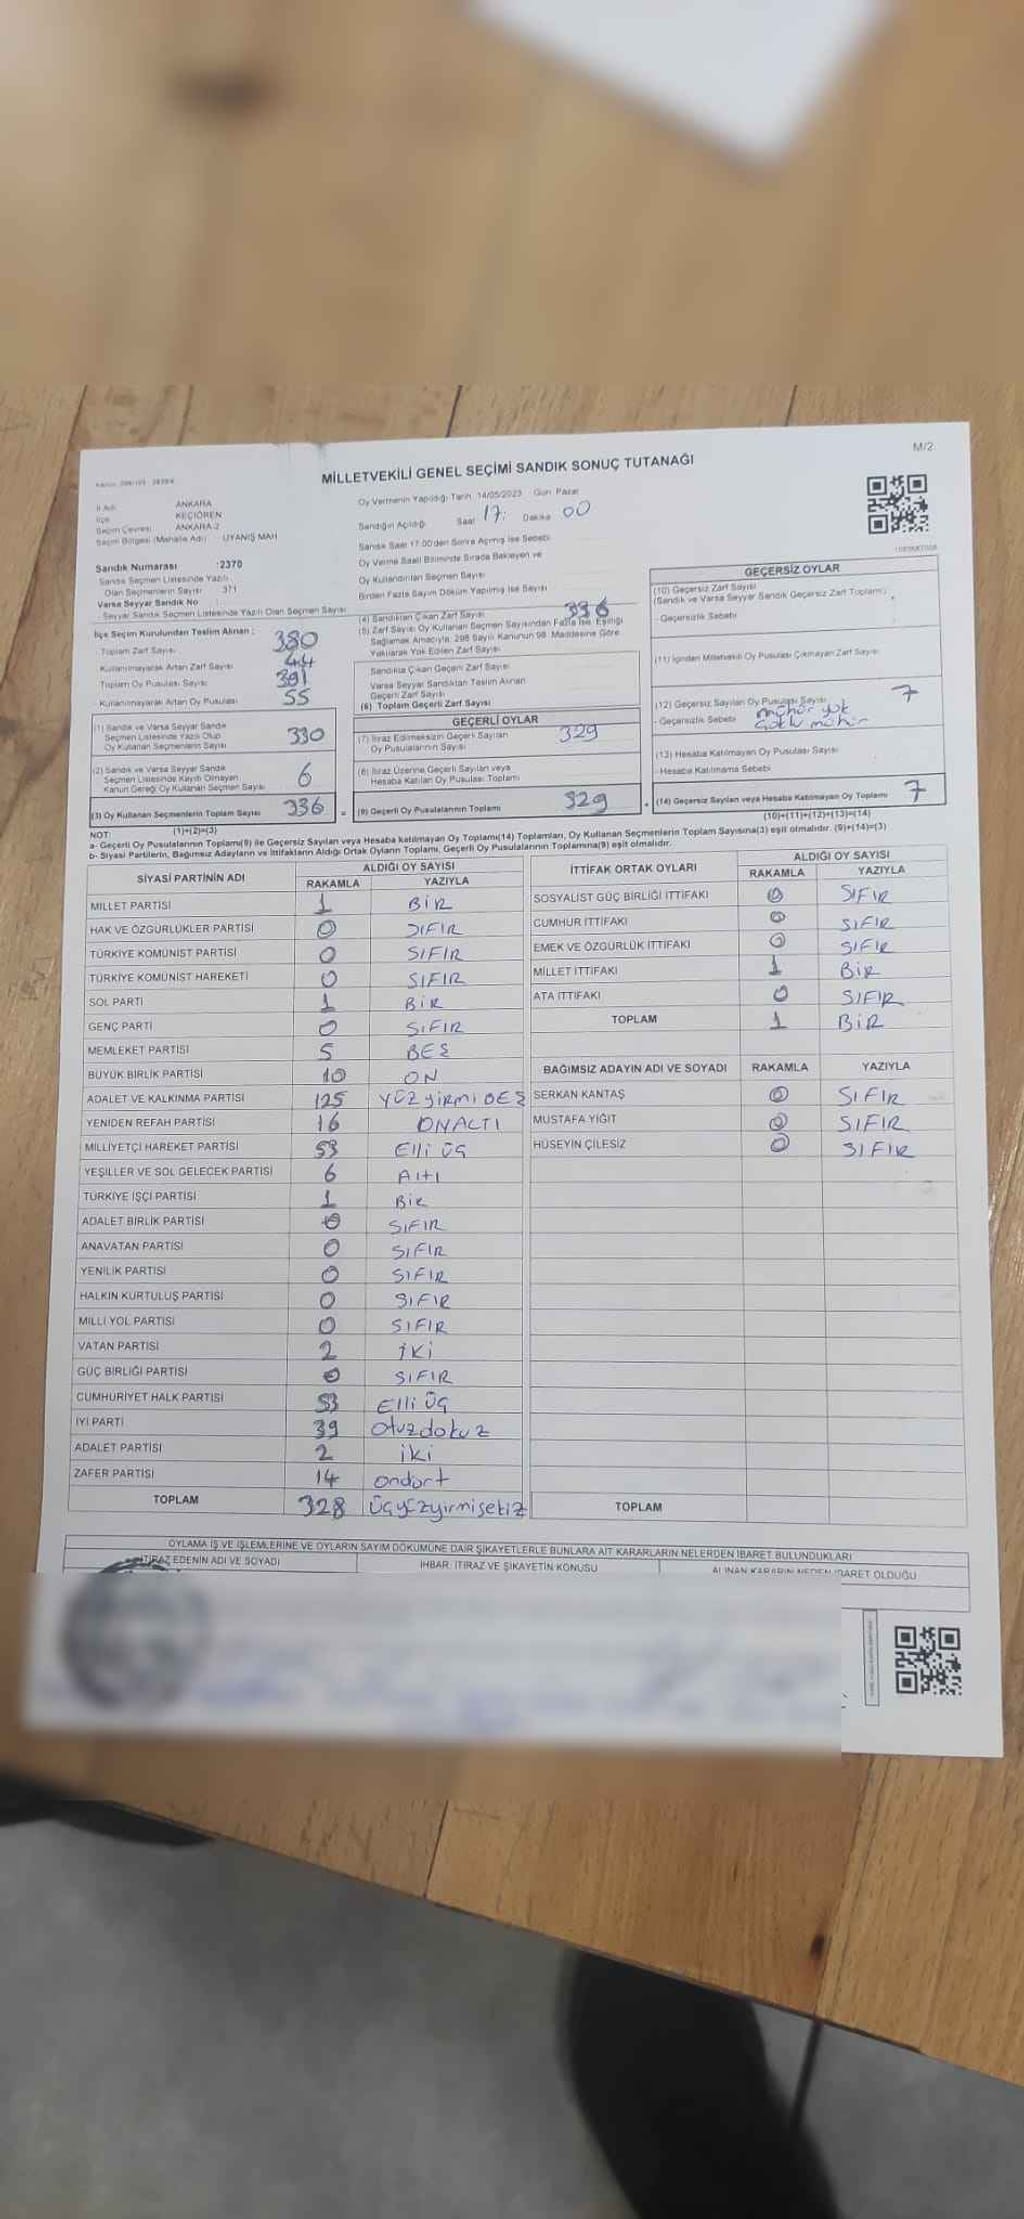 M/2
MİLLETVEKİLİ GENEL SEÇİMİ SANDIK SONUÇ TUTANAĞI
İl Adı ANKARA
İlçe KEÇİÖREN
Seçim Çevresi ANKARA-2
Seçim Bölgesi (Mahalle Adı) UYANIŞ MAH
Oy Vermenin Yapıldığı Tarih 14/05/2023 Gün Pazar
Sandığın Açıldığı Saat 17: Dakika 00
Sandık Saat 17:00'den Sonra Açılmış İse Sebebi
Oy Verme Saati Bitiminde Sırada Bekleyen ve
Oy Kullandırılan Seçmen Sayısı
Birden Fazla Sayım Döküm Yapılmış İse Sayısı
Sandık Numarası :2370
Sandık Seçmen Listesinde Yazılı
Olan Seçmenlerin Sayısı 371
Varsa Seyyar Sandık No
Seyyar Sandık Seçmen Listesinde Yazılı Olan Seçmen Sayısı
İlçe Seçim Kurulundan Teslim Alınan :
Toplam Zarf Sayısı 380
Kullanılmayarak Artan Zarf Sayısı 44
Toplam Oy Pusulası Sayısı 391
Kullanılmayarak Artan Oy Pusulası 55
(1) Sandık ve Varsa Seyyar Sandık
Seçmen Listesinde Yazılı Olup
Oy Kullanan Seçmenlerin Sayısı 330
(2) Sandık ve Varsa Seyyar Sandık
Seçmen Listesinde Kayıtlı Olmayan
Kanun Gereği Oy Kullanan Seçmen Sayısı 6
(3) Oy Kullanan Seçmenlerin Toplam Sayısı 336 =
(1)+(2)=(3)
(4) Sandıktan Çıkan Zarf Sayısı 336
(5) Zarf Sayısı Oy Kullanan Seçmen Sayısından Fazla İse, Eşitliği
Sağlamak Amacıyla, 298 Sayılı Kanunun 98. Maddesine Göre
Yakılarak Yok Edilen Zarf Sayısı
Sandıkta Çıkan Geçerli Zarf Sayısı
Varsa Seyyar Sandıktan Teslim Alınan
Geçerli Zarf Sayısı
(6) Toplam Geçerli Zarf Sayısı
GEÇERLİ OYLAR
(7) İtiraz Edilmeksizin Geçerli Sayılan
Oy Pusulalarının Sayısı 329
(8) İtiraz Üzerine Geçerli Sayılan veya
Hesaba Katılan Oy Pusulası Toplamı
(9) Geçerli Oy Pusulalarının Toplamı 329 +
GEÇERSİZ OYLAR
(10) Geçersiz Zarf Sayısı
(Sandık ve Varsa Seyyar Sandık Geçersiz Zarf Toplamı)
- Geçersizlik Sebebi
(11) İçinden Milletvekili Oy Pusulası Çıkmayan Zarf Sayısı
(12) Geçersiz Sayılan Oy Pusulası Sayısı 7
- Geçersizlik Sebebi mühür yok
çoklu mühür
(13) Hesaba Katılmayan Oy Pusulası Sayısı
- Hesaba Katılmama Sebebi
(14) Geçersiz Sayılan veya Hesaba Katılmayan Oy Toplamı 7
(10)+(11)+(12)+(13)=(14)
NOT:
a- Geçerli Oy Pusulalarının Toplamı(9) ile Geçersiz Sayılan veya Hesaba katılmayan Oy Toplamı(14) Toplamları, Oy Kullanan Seçmenlerin Toplam Sayısına(3) eşit olmalıdır. (9)+(14)=(3)
b- Siyasi Partilerin, Bağımsız Adayların ve İttifakların Aldığı Ortak Oyların Toplamı, Geçerli Oy Pusulalarının Toplamına(9) eşit olmalıdır.
SİYASİ PARTİNİN ADI ALDIĞI OY SAYISI
RAKAMLA YAZIYLA
MİLLET PARTİSİ 1 BİR
HAK VE ÖZGÜRLÜKLER PARTİSİ 0 SIFIR
TÜRKİYE KOMÜNİST PARTİSİ 0 SIFIR
TÜRKİYE KOMÜNİST HAREKETİ 0 SIFIR
SOL PARTİ 1 BİR
GENÇ PARTİ 0 SIFIR
MEMLEKET PARTİSİ 5 BEŞ
BÜYÜK BİRLİK PARTİSİ 10 ON
ADALET VE KALKINMA PARTİSİ 125 YÜZyirmi BEŞ
YENİDEN REFAH PARTİSİ 16 ONALTI
MİLLİYETÇİ HAREKET PARTİSİ 53 Elli üç
YEŞİLLER VE SOL GELECEK PARTİSİ 6 Altı
TÜRKİYE İŞÇİ PARTİSİ 1 BİR
ADALET BİRLİK PARTİSİ 0 SIFIR
ANAVATAN PARTİSİ 0 SIFIR
YENİLİK PARTİSİ 0 SIFIR
HALKIN KURTULUŞ PARTİSİ 0 SIFIR
MİLLİ YOL PARTİSİ 0 SIFIR
VATAN PARTİSİ 2 iki
GÜÇ BİRLİĞİ PARTİSİ 0 SIFIR
CUMHURİYET HALK PARTİSİ 53 Elli üç
İYİ PARTİ 39 otuzdokuz
ADALET PARTİSİ 2 iki
ZAFER PARTİSİ 14 ondört
TOPLAM 328 üçyüzyirmisekiz
İTTİFAK ORTAK OYLARI ALDIĞI OY SAYISI
RAKAMLA YAZIYLA
SOSYALİST GÜÇ BİRLİĞİ İTTİFAKI 0 SIFIR
CUMHUR İTTİFAKI 0 SIFIR
EMEK VE ÖZGÜRLÜK İTTİFAKI 0 SIFIR
MİLLET İTTİFAKI 1 BİR
ATA İTTİFAKI 0 SIFIR
TOPLAM 1 BİR
BAĞIMSIZ ADAYIN ADI VE SOYADI RAKAMLA YAZIYLA
SERKAN KANTAŞ 0 SIFIR
MUSTAFA YİĞİT 0 SIFIR
HÜSEYİN ÇİLESİZ 0 SIFIR
TOPLAM
OYLAMA İŞ VE İŞLEMLERİNE VE OYLARIN SAYIM DÖKÜMÜNE DAİR ŞİKAYETLERLE BUNLARA AİT KARARLARIN NELERDEN İBARET BULUNDUKLARI
İTİRAZ EDENİN ADI VE SOYADI
İHBAR, İTİRAZ VE ŞİKAYETİN KONUSU
ALINAN KARARIN NEDEN İBARET OLDUĞU